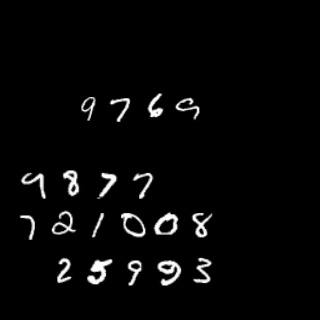 9769
9877
721008
25993